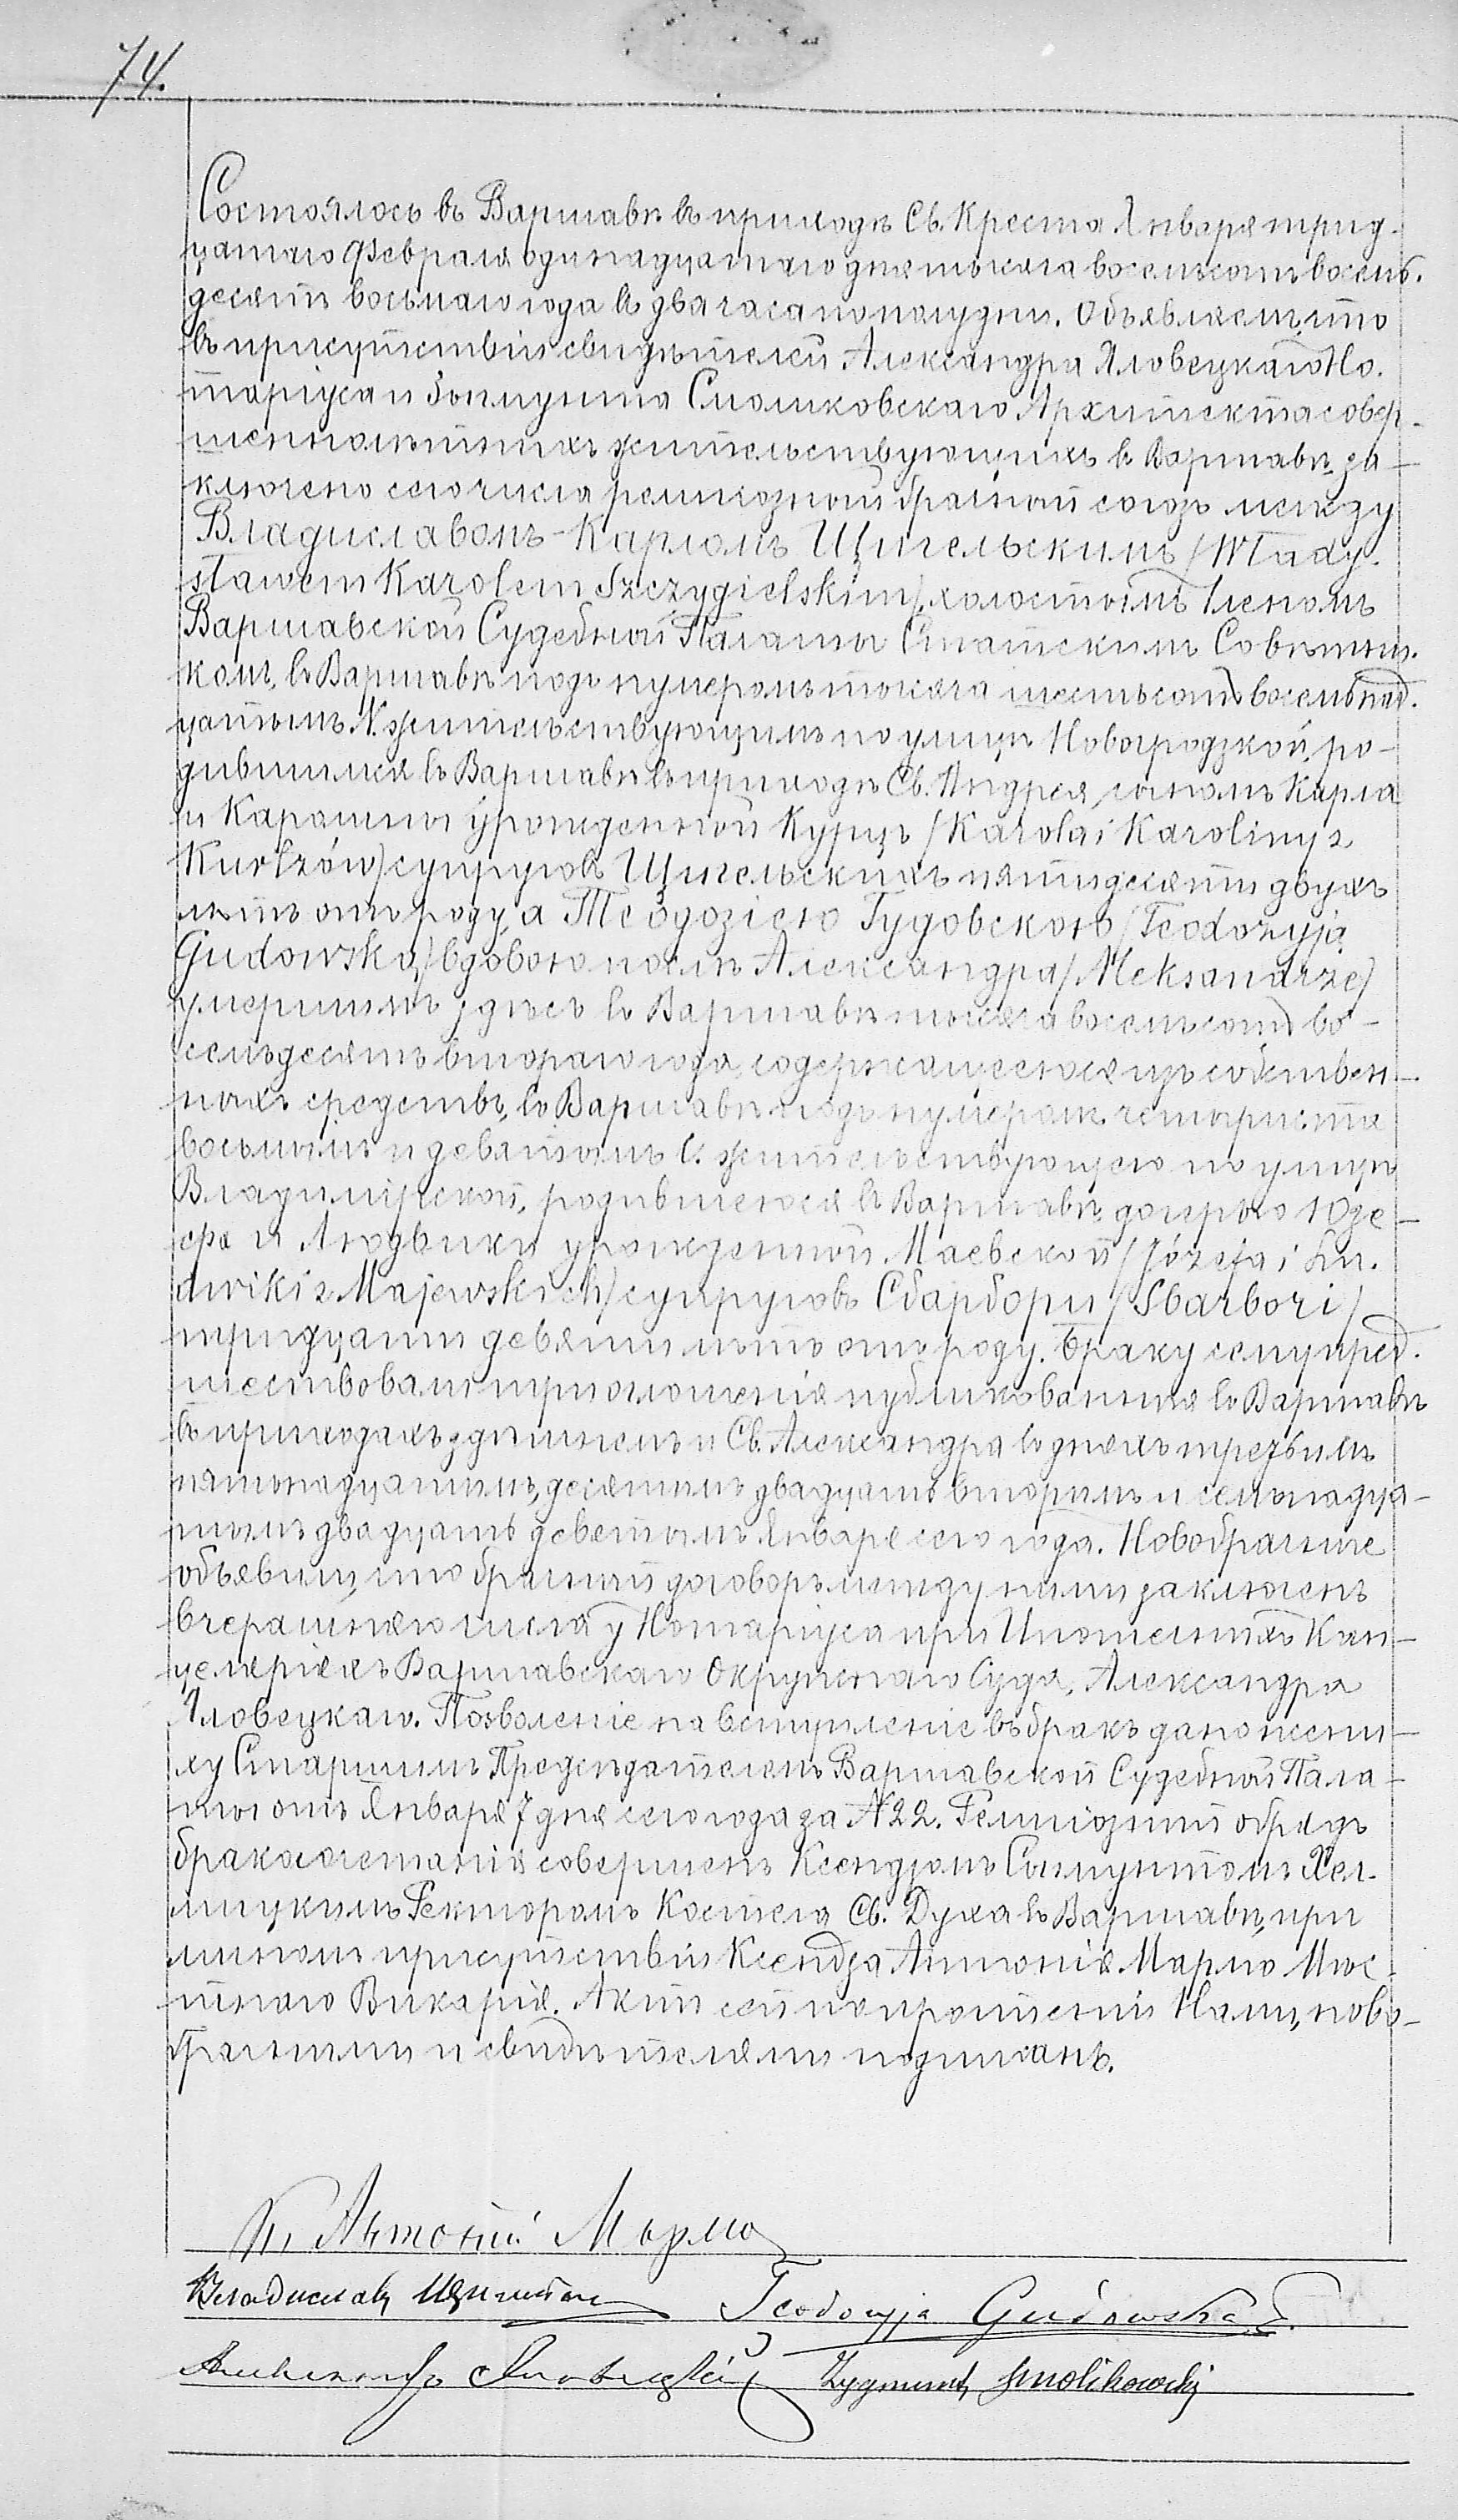 74.
Состоялось въ Варшавѣ въ приходѣ Св. Креста Января трид-
цатаго Февраля одинадцатаго дня тысяча восемьсотъ восемь-
десятъ восьмаго года въ два часа по полудни. Объявляемъ, что
въ присутствіи свидѣтелей Александра Яловецкаго Но-
таріуса и Зыгмунта Смоликовскаго Архитекта совер-
шеннолѣтнихъ жительствующихъ въ Варшавѣ, за-
ключено сего числа религіозный брачный союзъ между
Владиславомъ-Карломъ Щигельскимъ /Włady-
sławem Karolem Szczygielskim/, холостымъ Членомъ
Варшавской Судебной Палаты Статскимъ Совѣтни-
комъ, въ Варшавѣ подъ нумеромъ тысяча шестьсотъ восемьнад-
цатымъ N. жительствующимъ по улицѣ Новогродзкой, ро-
дившимся въ Варшавѣ въ приходѣ Св. Андрея, сыномъ Карла
и Каролины урожденной Курцъ /Karola i Karoliny z
Kurtzów/ супруговъ Щигельскихъ пятидесяти двухъ
лѣтъ отъ роду, а Теодозіею Гудовскою /Teodozyją
Gudowską/ вдовою послѣ Александра /Aleksandrze/
умершимъ здѣсь въ Варшавѣ тысяча восемьсотъ во-
семьдесятъ втораго года, содержащеюся изъ собствен-
ныхъ средствъ, въ Варшавѣ подъ нумеромъ четыриста
восьмымъ и девятымъ жительствующею по улицѣ
Владимірской, родившеюся въ Варшавѣ, дочерью Юзе-
фа и Людвики урожденной Маевской /Józefa i Lu-
dwiki z Majewskich/ супруговъ Сбарбори /Sbarbori/
тридцати девяти лѣтъ отъ роду. Браку сему пред-
шествовали три оглошенія публикованныя въ Варшавѣ
въ приходахъ здѣшнемъ и Св. Александра въ дняхъ третьимъ
пятонадцатымъ, десятымъ двадцать вторымъ и семьнадца-
тымъ двадцать девятымъ Января сего года. Новобрачные
объявили, что брачный договоръ между ними заключенъ
вчерашняго числа у Нотаріуса при Ипотечныхъ Кан-
целяріяхъ Варшавскаго Окружнаго Суда, Александра
Яловецкаго. Позволеніе на вступленіе въ бракъ дано жени-
ху Старшимъ Предсѣдателемъ Варшавской Судебной Пала-
ты отъ Января 7 дня сего года за N 22. Религіозный обрядъ
бракосочетанія совершенъ Ксендзомъ Сигмунтомъ Хел-
мицкимъ Ректоромъ Костела Св. Духа въ Варшавѣ, при
личномъ присутствіи Ксендза Антонія Мармо Мѣс-
тнаго Викарія. Актъ сей по прочтеніи Нами, ново-
брачными и свидѣтелями подписанъ.
Кс. Антоній Мармо
Владиславъ Щигельскій Teodozyja Gudowska
Александръ Яловецкій Zygmunt Smolikowski